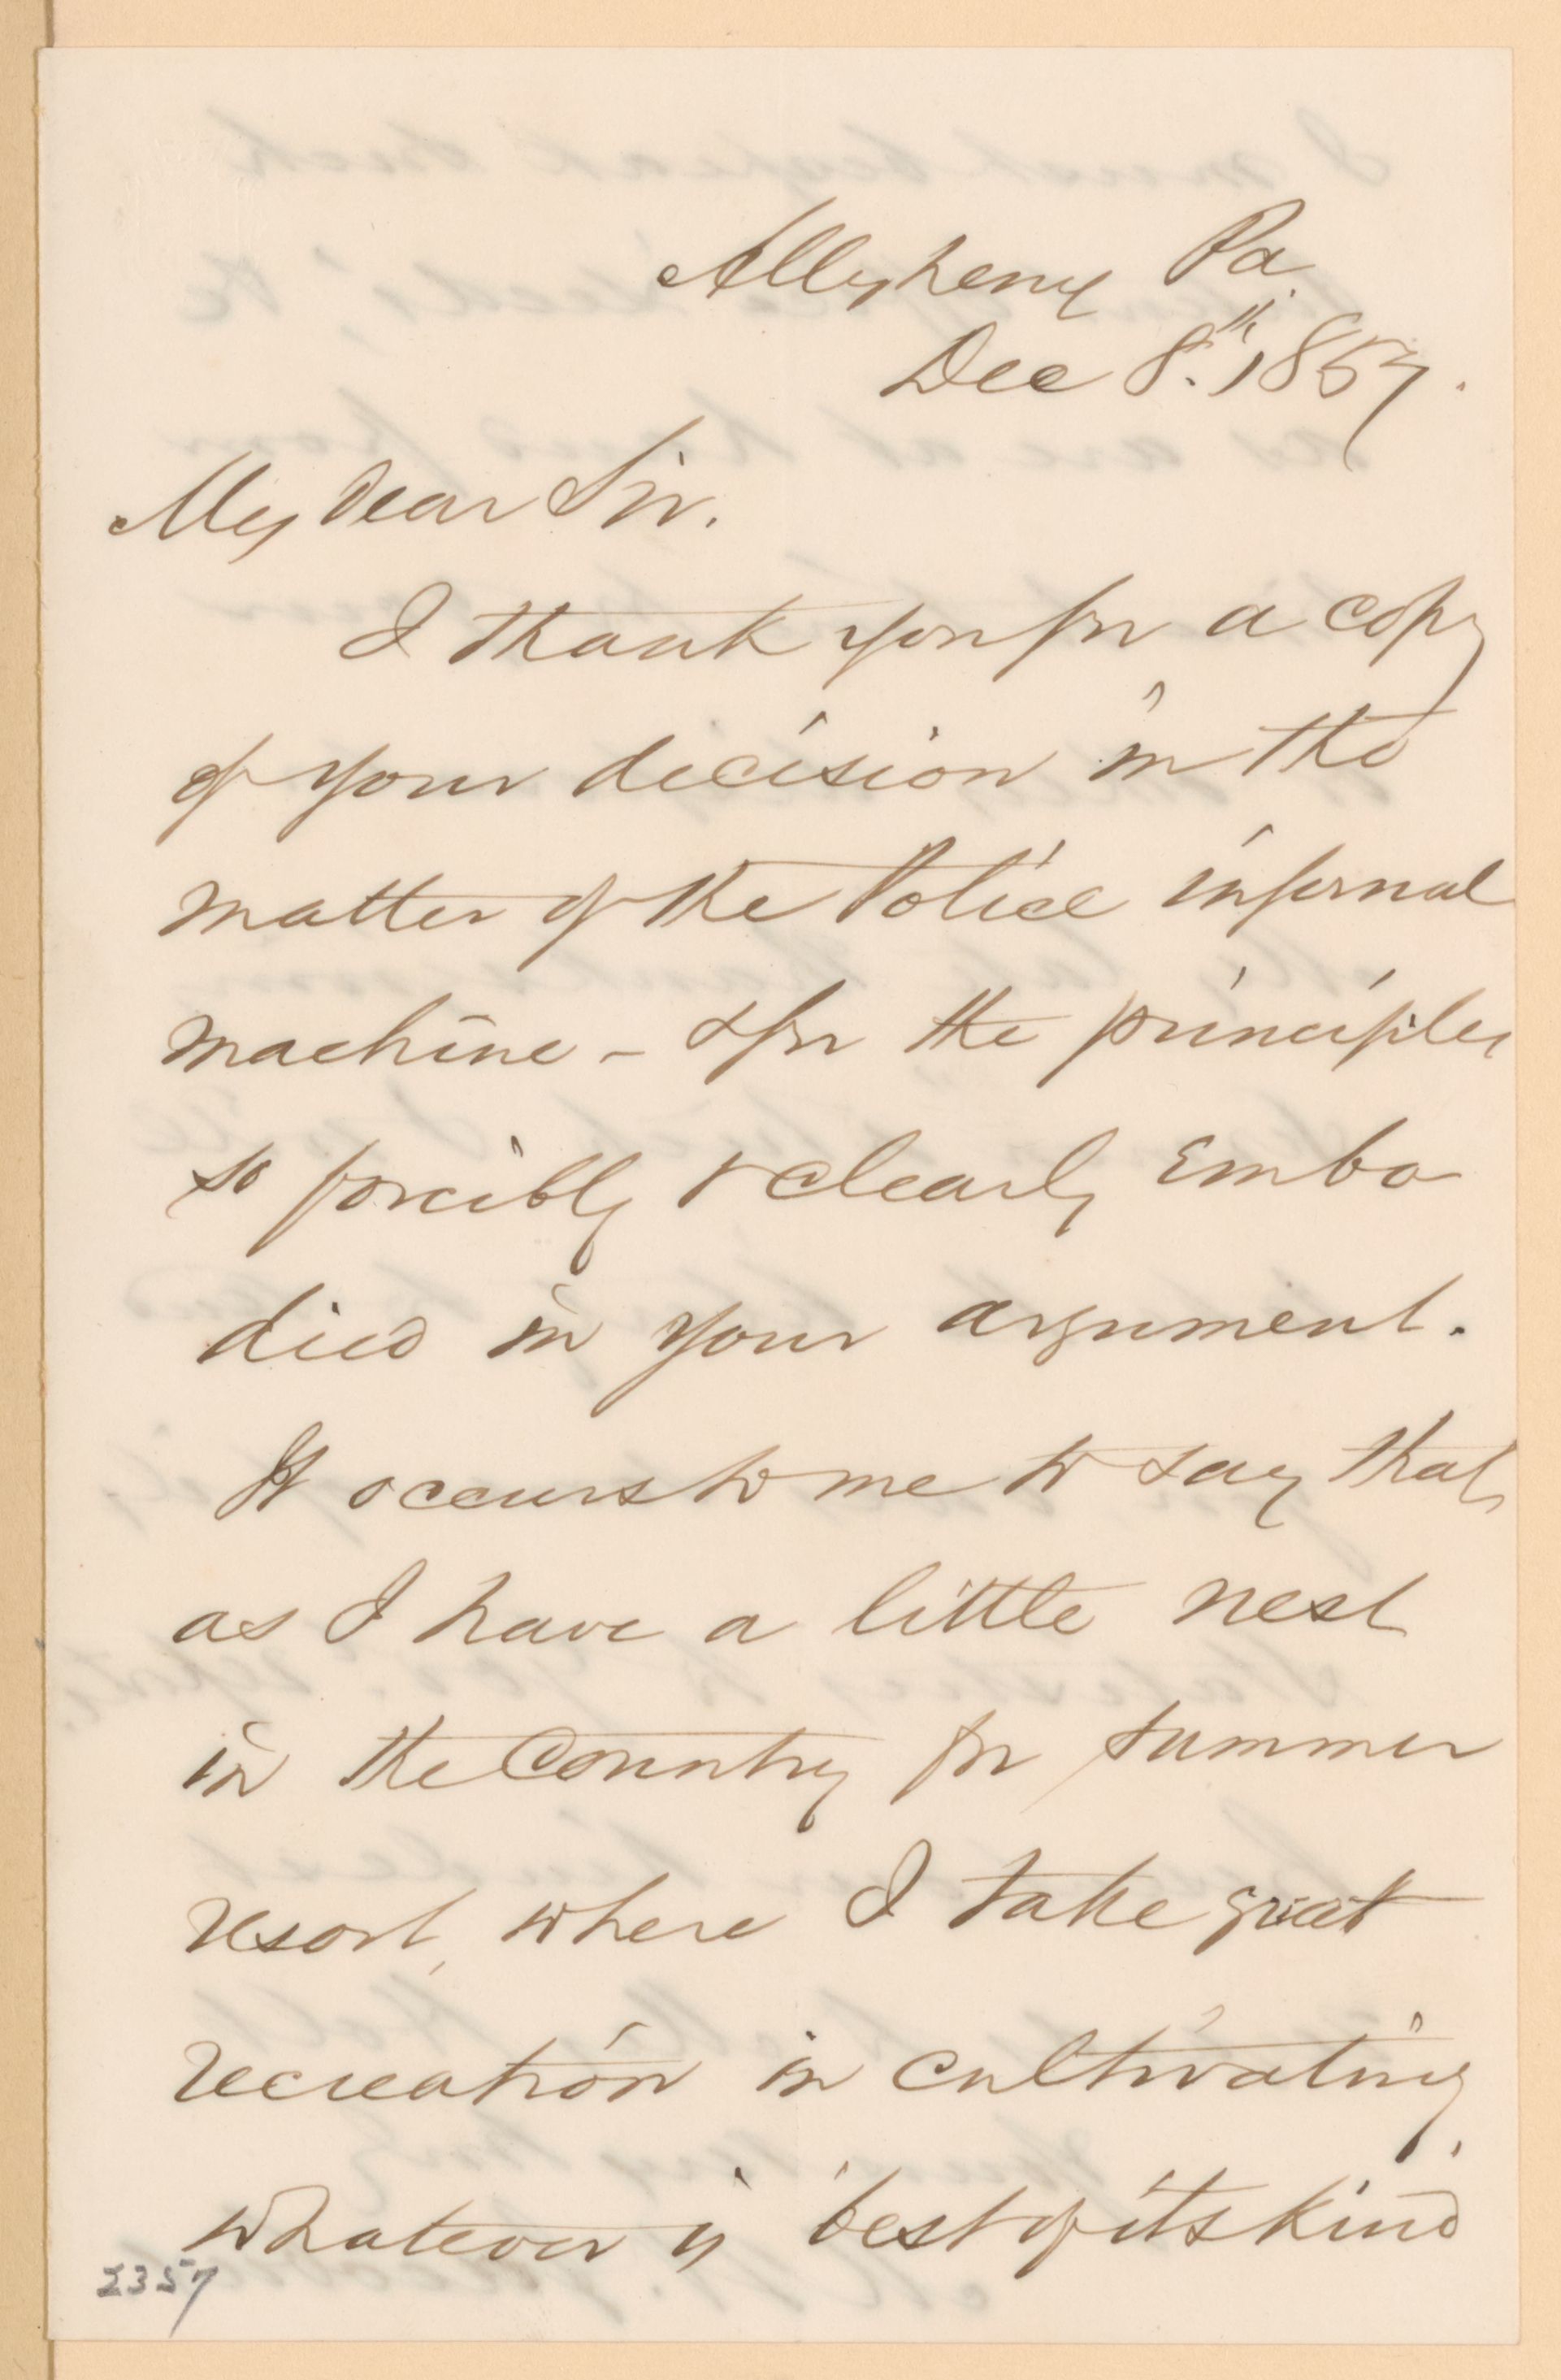 Allegheny Pa.
Dec 8.th 1857.
My Dear Sir.
I thank you for a copy
of your decision in the
matter of the Police infernal
machine - & for the principles
so forcibly & clearly embo
died in your argument.
It occurs to me to say that
as I have a little nest
in the Country for summer
resort, where I take great
recreation in cultivating,
whatever is best of its kind
2357